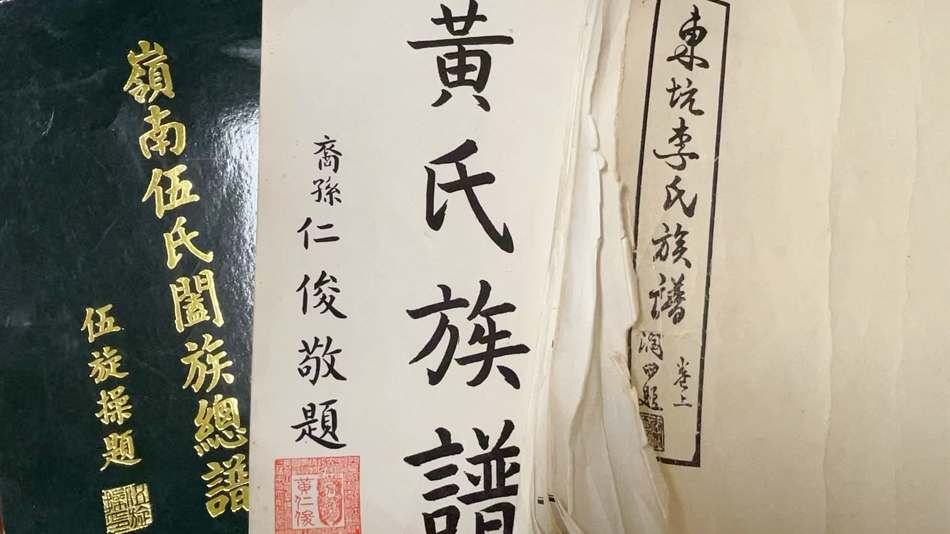 嶺南伍氏闔族總譜
伍旋操題
黃氏族譜
裔孫仁俊敬題
黃仁俊
東坑李氏族譜
卷上